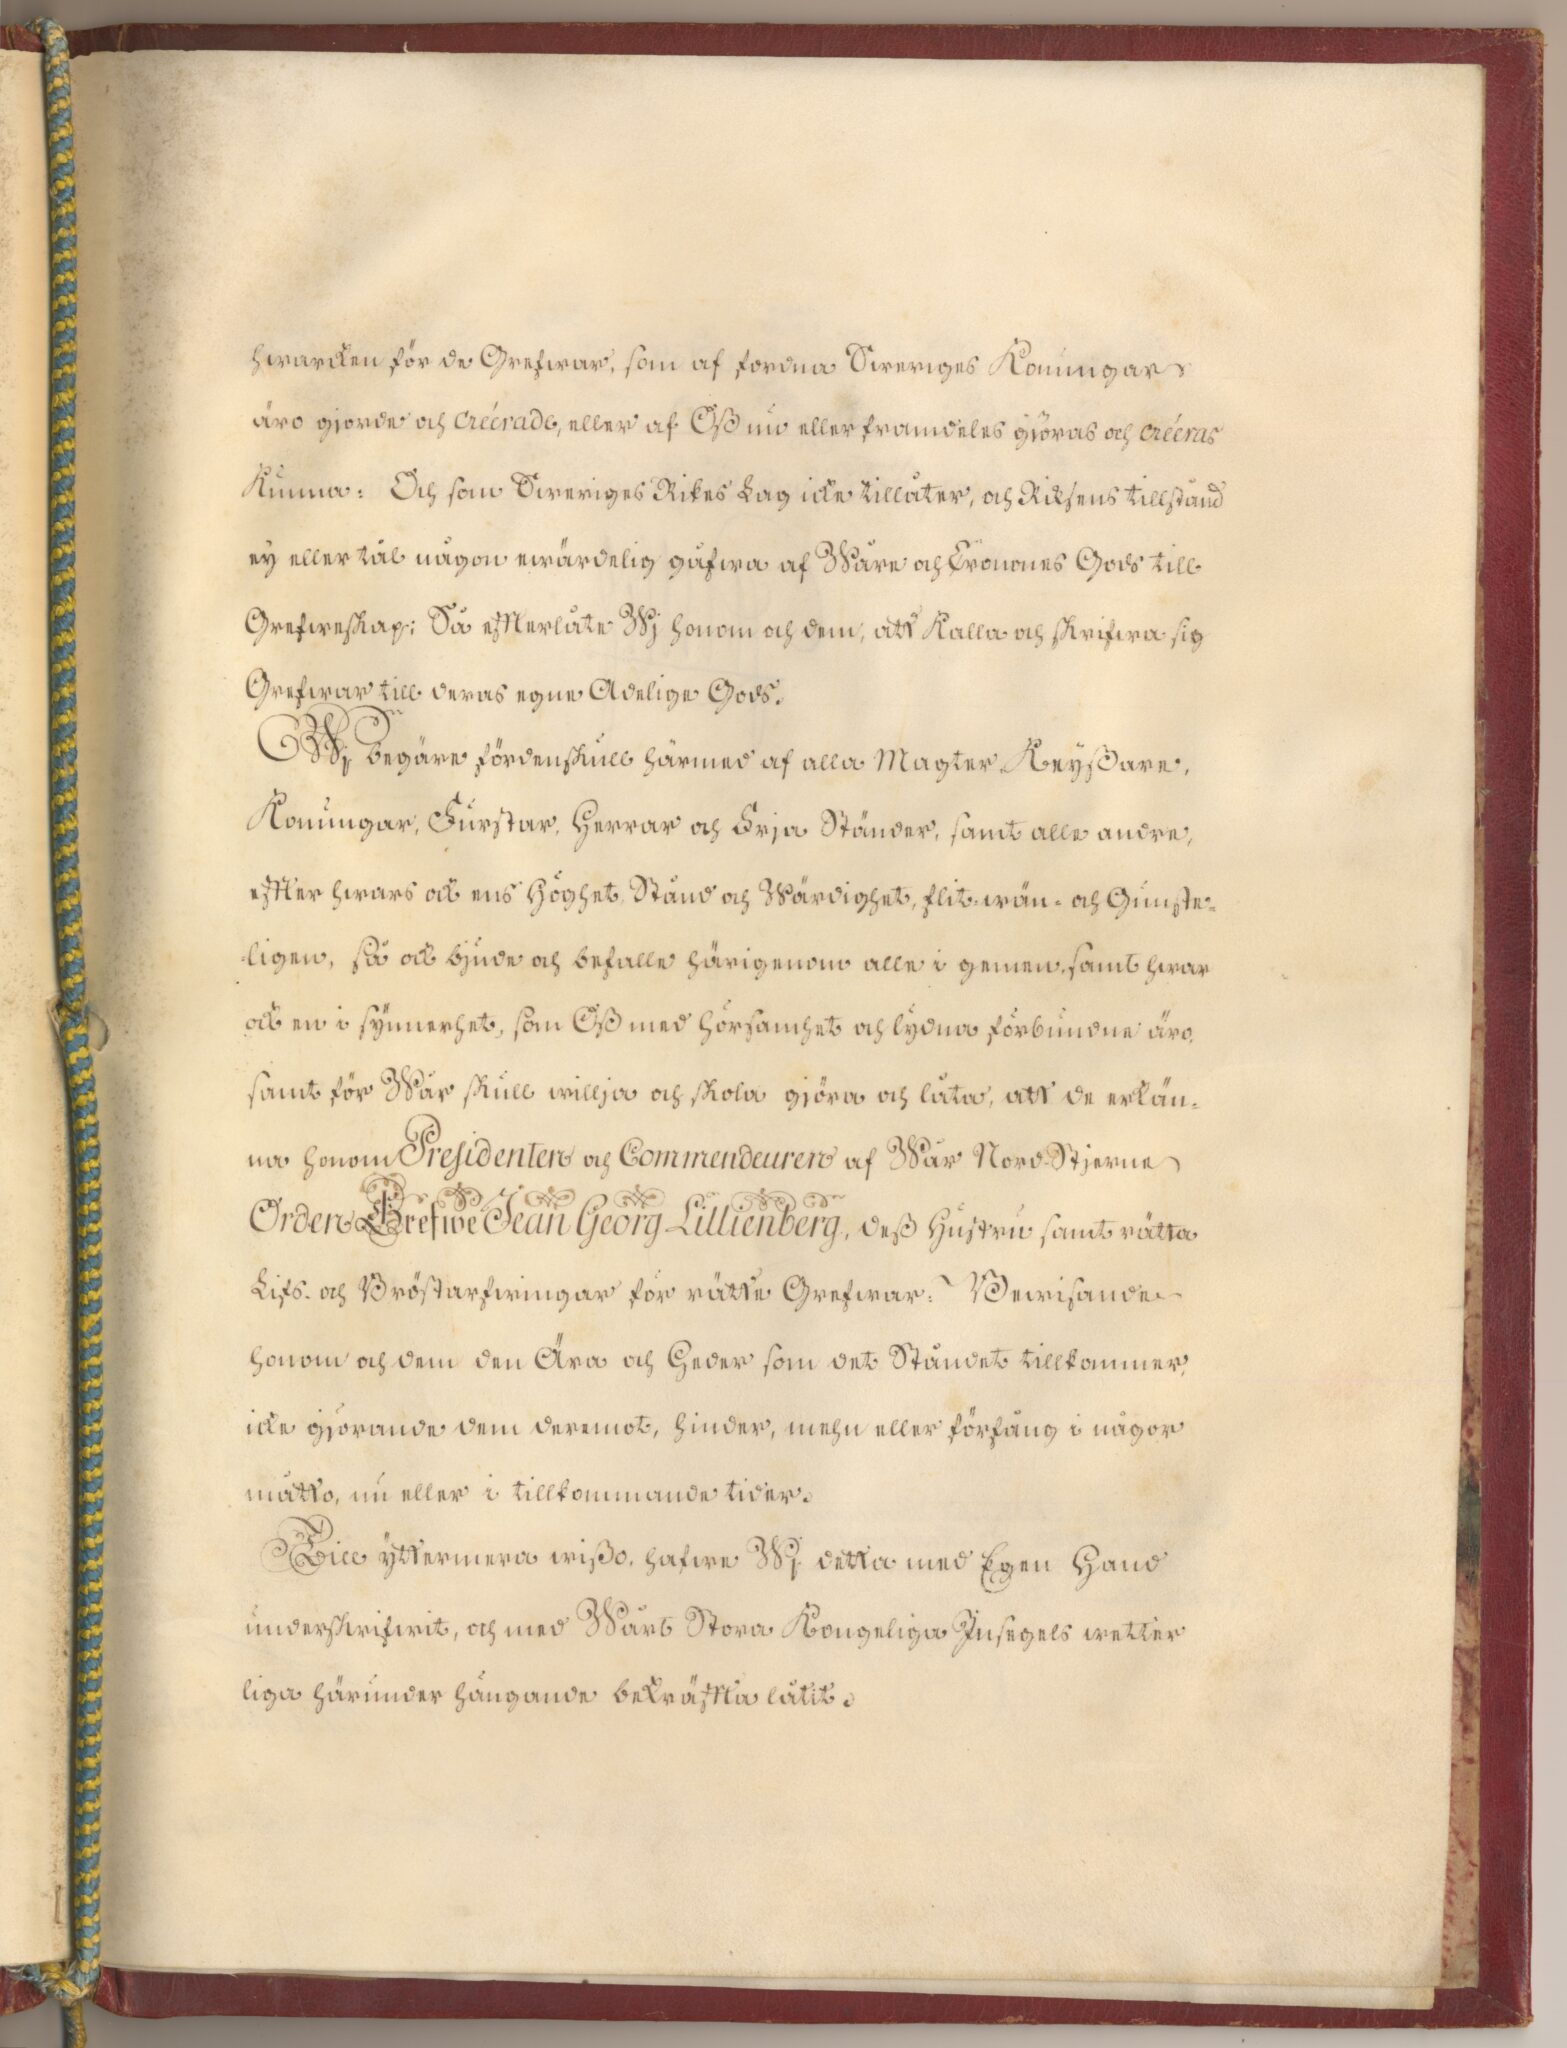 hwarcken för de Grefwar, som af fordna Sweriges Konungar
äro gjorde och creérade, eller af Oß nu eller framdeles gjöras och creéras
kunna: Och som Sweriges Rikes Lag icke tillåter, och Riksens tillstånd
ey eller tål någon ewärdelig gåfwa af Wåre och Cronones Gods till
Grefweskap; Så efterlåte Wj honom och dem, att kalla och skrifwa sig
Grefwar till deras egne Adelige Gods.
Wj begäre fördenskull härmed af alla Magter Keyßare,
Konungar, Furstar, Herrar och Frja Ständer, samt alle andre,
efter hwars ock ens Höghet, Stånd och Wärdighet, flit- wän- och Gunste-
-ligen, så ock bjude och befalle härigenom alle i gemen, samt hwar
ock en i synnerhet, som Oß med hörsamhet och lydna förbundne äro,
samt för Wår skull willja och skola gjöra och låta, att de erkän-
na honom Presidenten och Commendeuren af Wår Nord-Stjerne
Orden Grefwe Jean Georg Lillienberg, deß Hustru samt rätta
Lifs- och Bröstarfwingar för rätte Grefwar: Bewisande
honom och dem den Ära och Heder som det Ståndet tillkommer,
icke gjörande dem deremot, hinder, mehn eller förfång i någor
måtto, nu eller i tillkommande tider.
Till yttermera wißo, hafwe Wj detta med Egen Hand
underskrifwit, och med Wårt Stora Kongeliga Insegels wetter
liga härunder hängande bekräfta låtit.